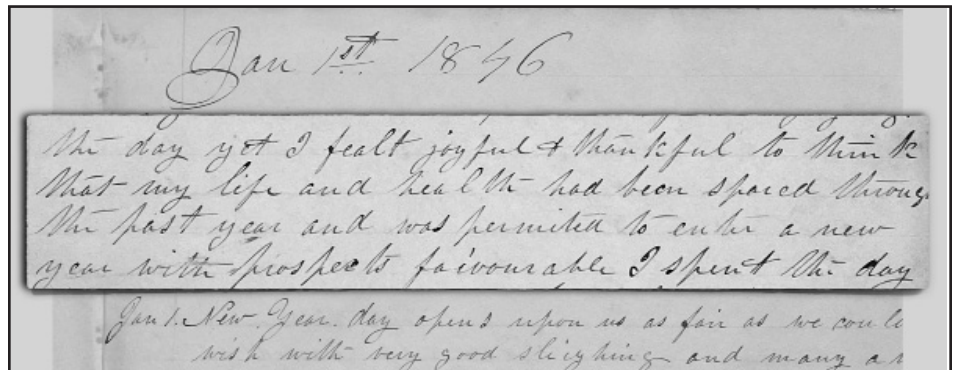 Jan 1st 1846
the day yet I fealt joyful & thankful to think
that my life and health had been spared throug
the past year and was permitted to enter a new
year with prospects faivourable I spent the day
Jan 1. New Year day opens upon us as fair as we coul
wish with very good sleighing and many a